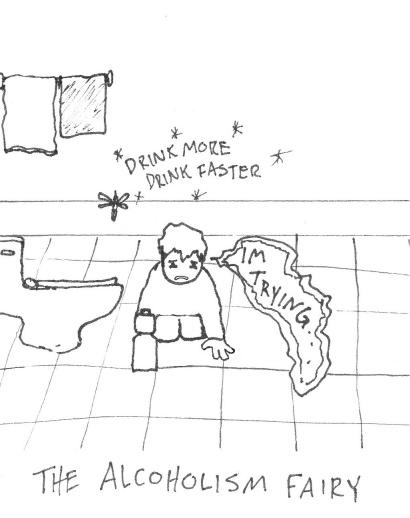 DRINK MORE
DRINK FASTER
IM
TRYING...
THE ALCOHOLISM FAIRY